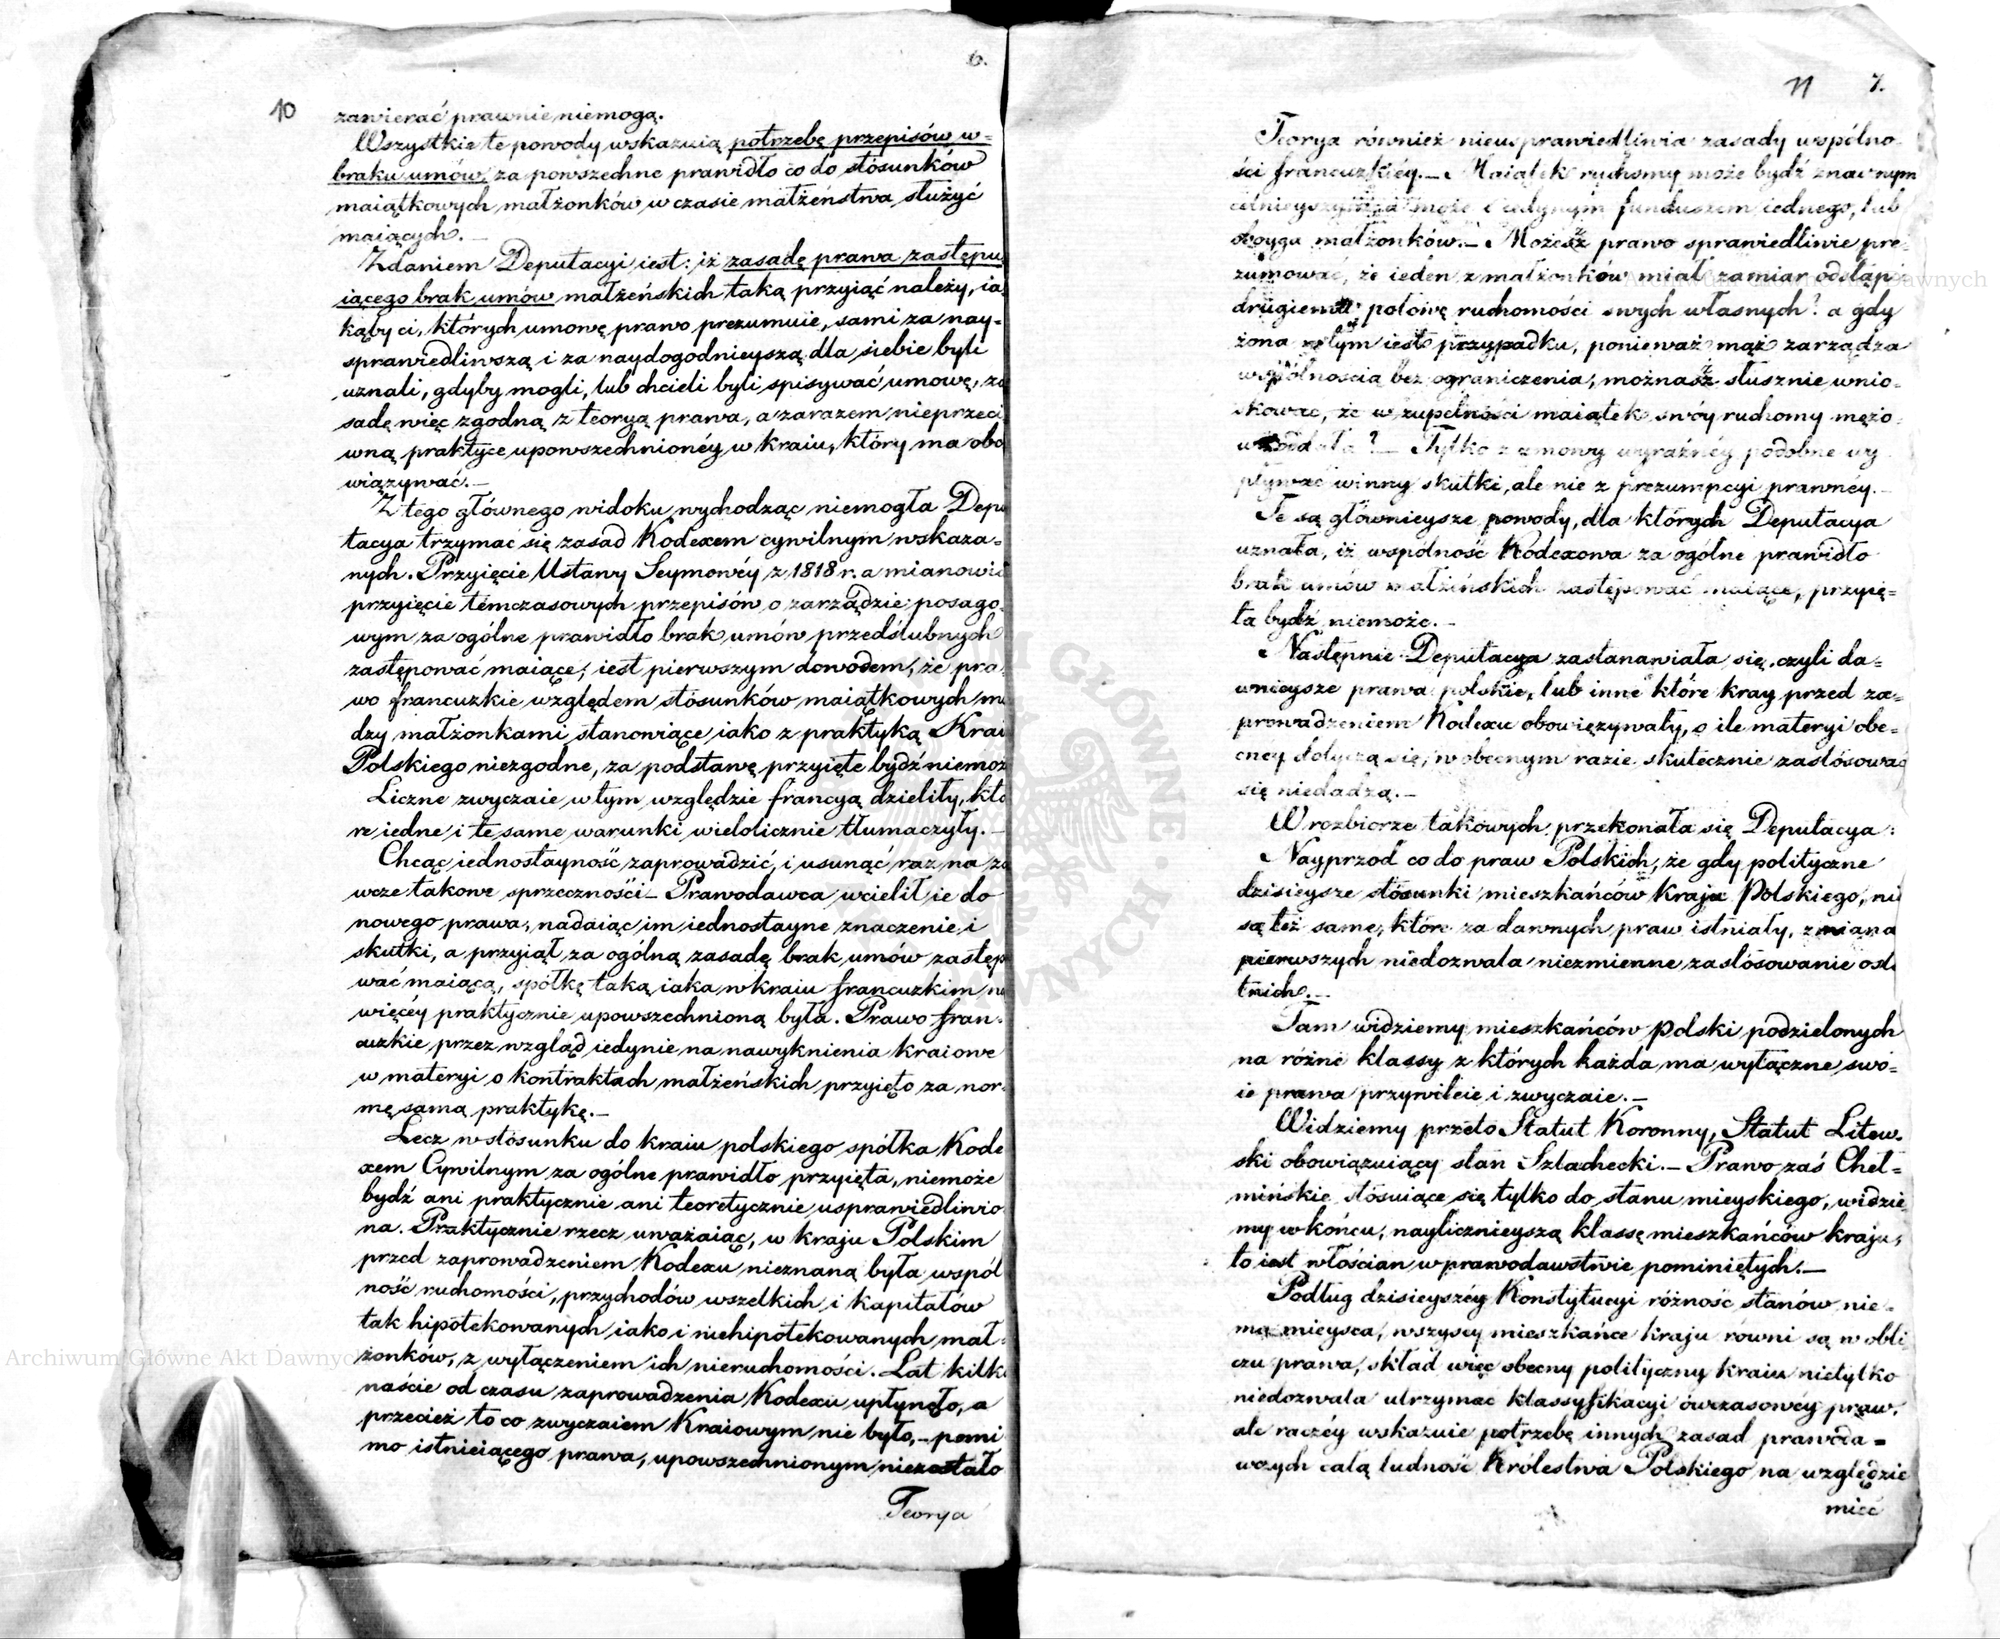 6.
10
zawierać prawnie niemogą.
Wszystkie te powody wskazuią potrzebę przepisów w-
braku umów, za powszechne prawidło co do stósunków
maiątkowych małżonków w czasie małżeństwa służyć
maiących. —
Zdaniem Deputacyi iest: iż zasadę prawa zastępu
iącego brak umów małżeńskich taką przyiąć należy, ia-
kąby ci, których umowę prawo prezumuie, sami za nay-
sprawiedliwszą i za naydogodnieyszą dla siebie byli
uznali, gdyby mogli, lub chcieli byli spisywać umowę, za
sadę więc zgodną z teoryą prawa, a zarazem nieprzeci
wną praktyce upowszechnionéy w kraiu, który ma obo
wiązywać. —
Z tego głównego widoku wychodząc niemogła Depu
tacya trzymać się zasad Kodexem cywilnym wskaza-
nych. Przyięcie Ustawy Seymowéy z 1818 r. a mianowicie
przyięcie témczasowych przepisów o zarządzie posago-
wym za ogólne prawidło brak umów przedślubnych
zastępować maiące, iest pierwszym dowodem, że pra
wo francuzkie względem stósunków maiątkowych mię
dzy małżonkami stanowiące iako z praktyką Kraiu
Polskiego niezgodne, za podstawę przyięte bydź niemoż
Liczne zwyczaie w tym względzie francyą dzieliły, któ
re iedne i te same warunki wielolicznie tłumaczyły. —
Chcąc iednostayność zaprowadzić, i usunąć raz na za
wsze takowe sprzeczności — Prawodawca wcielił ie do
nowego prawa, nadaiąc im iednostayne znaczenie i
skutki, a przyiął za ogólną zasadę brak umów zastępo
wać maiącą, spółkę taką iaka w kraiu francuzkim na
więcéy praktycznie upowszechnioną była. Prawo fran-
cuzkie przez wzgląd iedynie na nawyknienia kraiowe
w materyi o kontraktach małżeńskich przyięto za nor-
mę samą praktykę. —
Lecz w stósunku do kraiu polskiego spółka Kode
xem Cywilnym za ogólne prawidło przyięta, niemoże
bydź ani praktycznie ani teoretycznie usprawiedliwio
na. Praktycznie rzecz uważaiąc, w kraju Polskim
przed zaprowadzeniem Kodexu nieznaną była wspól
ność ruchomości, przychodów wszelkich, i kapitałów
tak hipotekowanych iako i niehipotekowanych mał-
żonków, z wyłączeniem ich nieruchomości. Lat kilka
naście od czasu zaprowadzenia Kodexu upłynęło, a
przecież to co zwyczaiem Kraiowym nie było, — pomi
mo istnieiącego prawa, upowszechnionym niezostało
Teorya
11
7.
Teorya również nieusprawiedliwia zasady wspólno-
ści francuzkiéy. — Maiątek ruchomy może bydź znacznym
celnieyszym, a może i iedynym funduszem iednego, lub
oboyga małżonków. — Możesz prawo sprawiedliwie pre-
zumować, że ieden z małżonków miał zamiar odstąpić
drugiemu połowę ruchomości swych własnych? a gdy
żona w tym iest przypadku, ponieważ mąż zarządza
wspólnością bez ograniczenia, możnasz słusznie wnio-
skować, że w zupełności maiątek swóy ruchomy mężo-
wi oddała? — Tylko z umowy wyraźnéy podobne wy-
pływać winny skutki, ale nie z prezumpcyi prawnéy. —
Te są głównieysze powody, dla których Deputacya
uznała, iż wspólność Kodexowa za ogólne prawidło
brak umów małżeńskich zastępować maiące, przyię-
ta bydź niemoże. —
Następnie Deputacya zastanawiała się, czyli da-
wnieysze prawa polskie, lub inne które kray przed za-
prowadzeniem Kodexu obowięzywały, o ile materyi obe-
cney dotyczą się, w obecnym razie skutecznie zastósować
się niedadzą. —
W rozbiorze takowych przekonała się Deputacya:
Nayprzod co do praw Polskich, że gdy polityczne
dzisieysze stósunki mieszkańców kraju Polskiego, nie
są też same, które za dawnych praw istniały, zmiana
pierwszych niedozwala niezmienne zastósowanie osta
tnich. —
Tam widziemy mieszkańców Polski podzielonych
na różne klassy z których każda ma wyłączne swo-
ie prawa przywileie i zwyczaie. —
Widziemy przeto Statut Koronny, Statut Litew-
ski obowiązuiący stan Szlachecki. — Prawo zaś Cheł-
mińskie stósuiące się tylko do stanu mieyskiego, widzie
my w końcu, nayliczniéyszą klassę mieszkańców kraju,
to iest włościan w prawodawstwie pominiętych. —
Podług dzisieyszéy Konstytucyi różność stanów nie-
ma mieysca, wszyscy mieszkańce kraju równi są w obli
czu prawa, skład więc obecny polityczny kraiu nietylko
niedozwala utrzymać klassyfikacyi ówczasowéy praw,
ale raczéy wskazuie potrzebę innych zasad prawoda-
wczych całą ludność Królestwa Polskiego na względzie
mieć
Archiwum Główne Akt Dawnych
Archiwum Główne Akt Dawnych